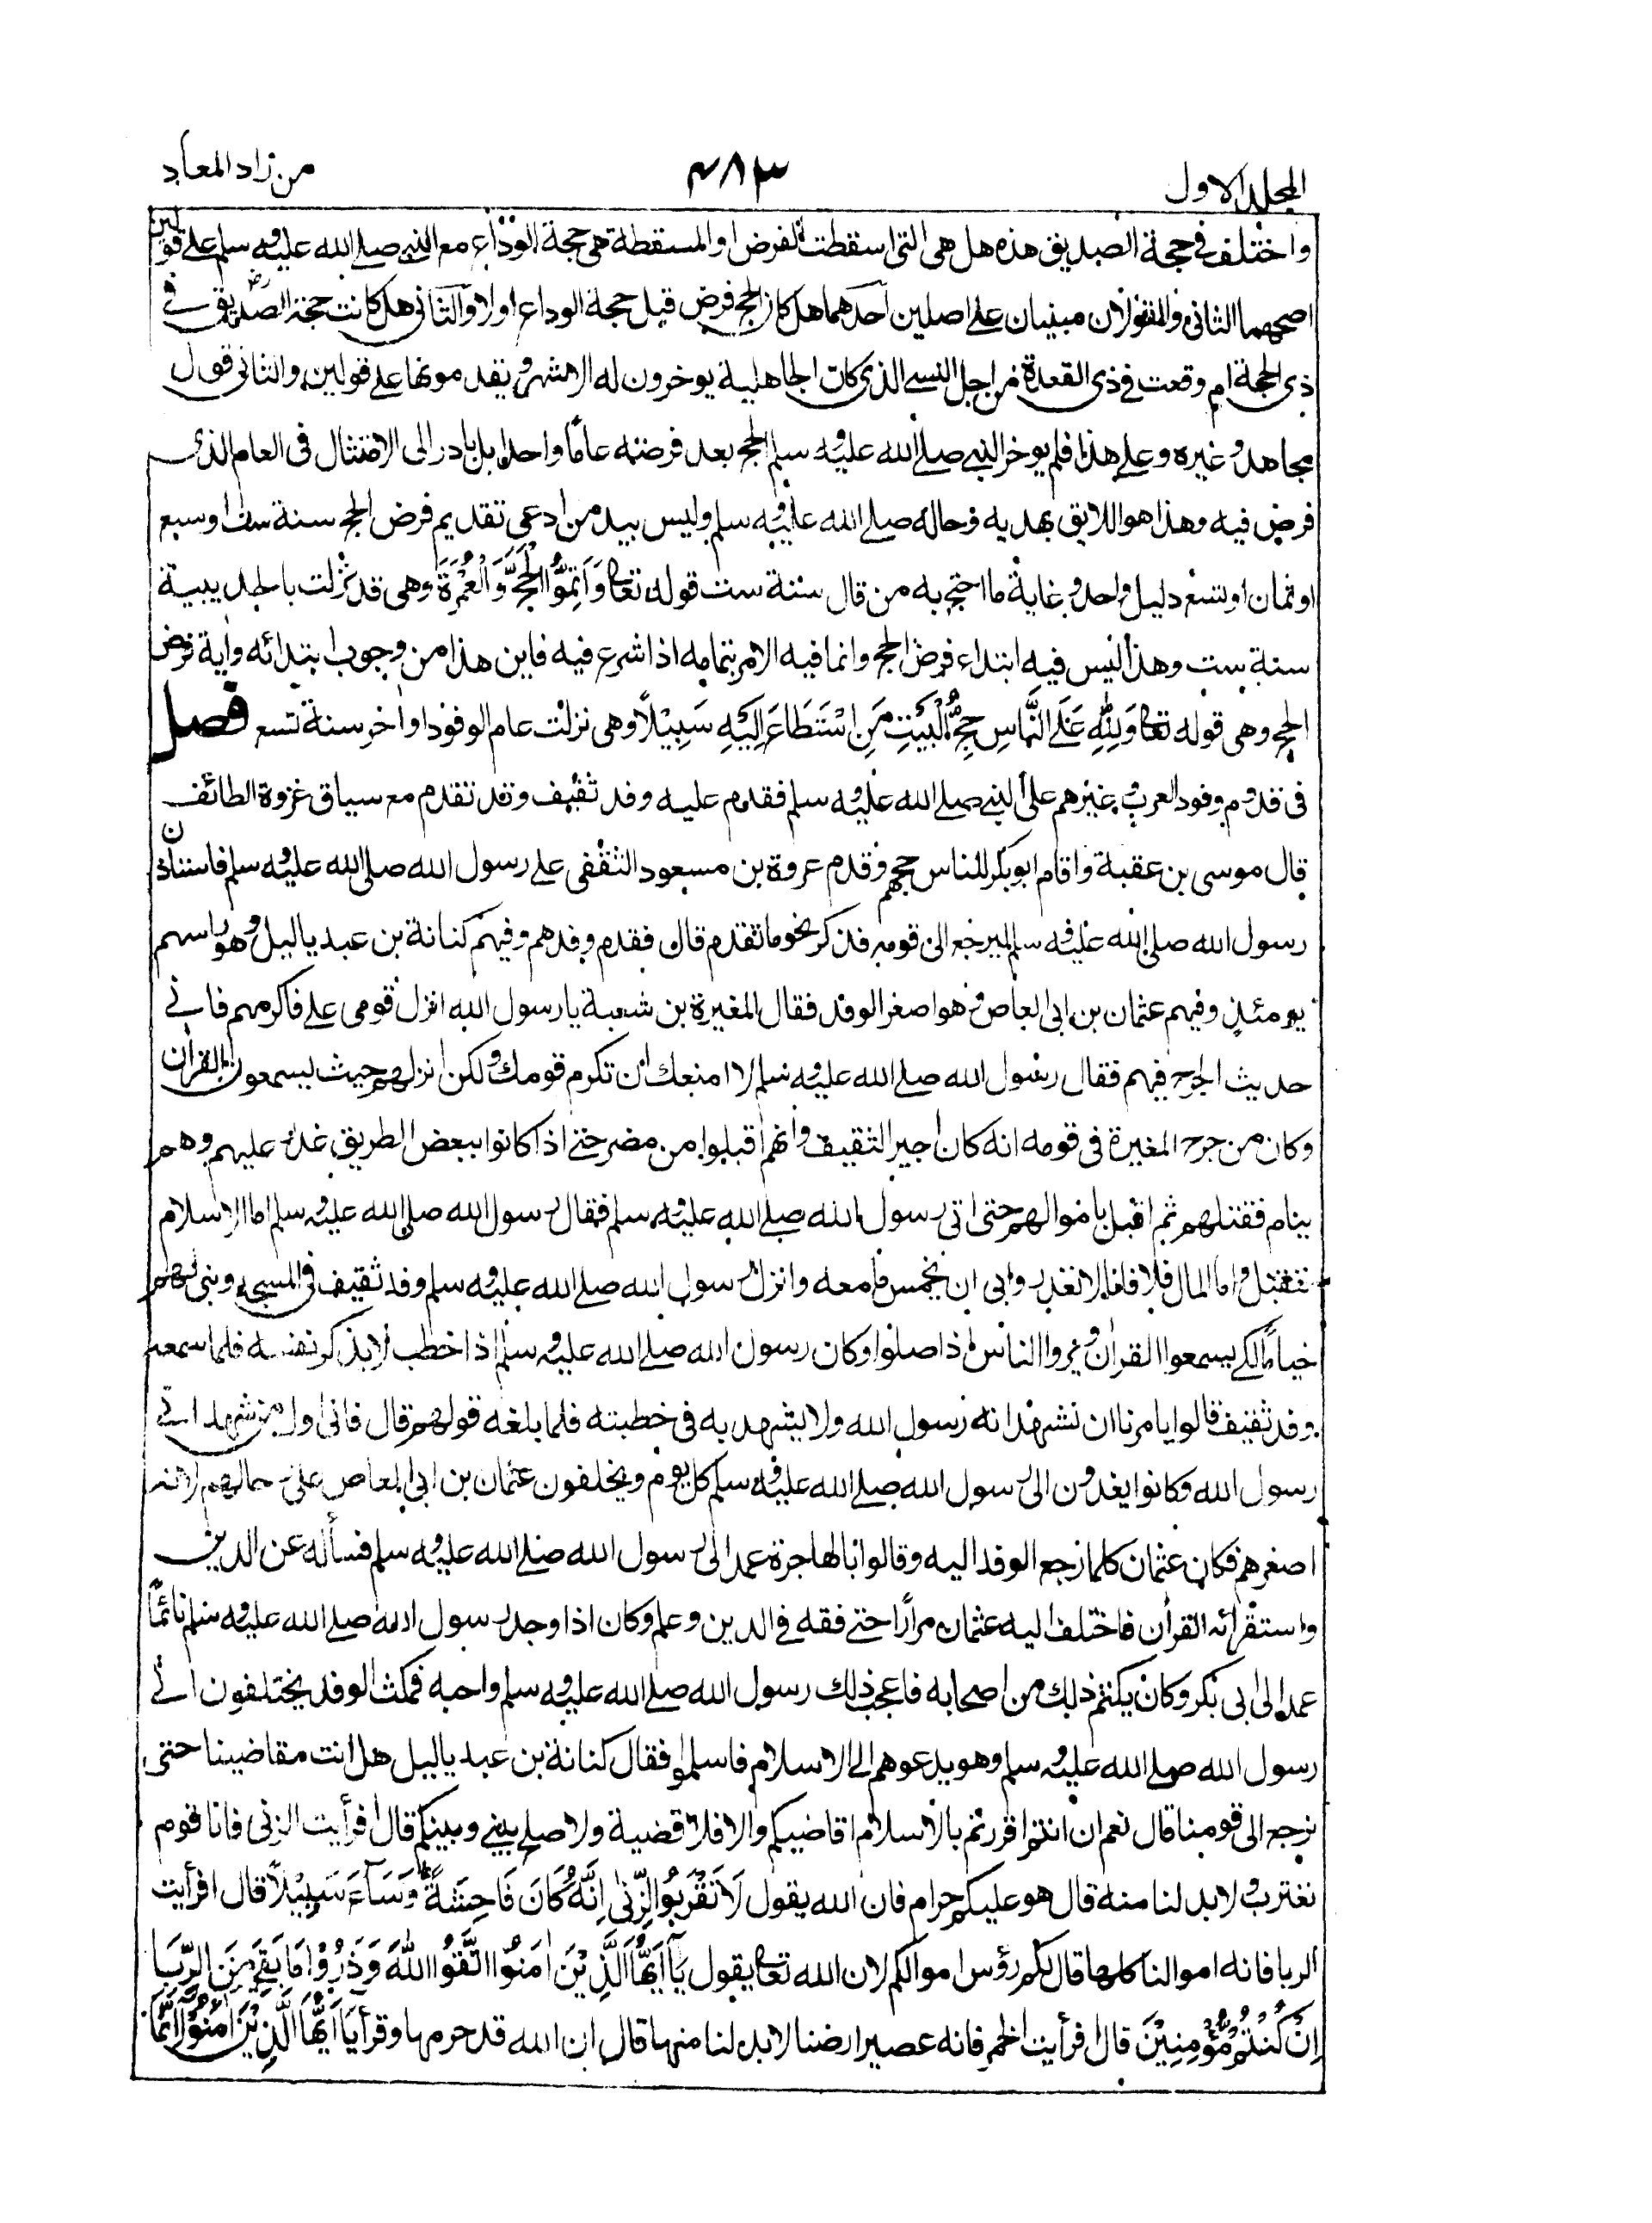 المجلد الاول
٤٨٣
من زاد المعاد
واختلف في حجة الصديق هذه هل هي التي اسقطت الفرض او المسقطة هي حجة الوداع مع النبي صلے الله عليه وسلم علے قولين
اصحهما الثاني والقولان مبنيان علے اصلين احدهما هل كان الحج فرض قبل حجة الوداع اولا والثاني هل كانت حجة الصديق رض في
ذي الحجة ام وقعت في ذي القعدة من اجل النسے الذي كان الجاهلية يوخرون له الاشهر ويقدمونها علے قولين والثاني قول
مجاهد وغيره وعلے هذا فلم يوخر النبي صلے الله عليه وسلم الحج بعد فرضه عاما واحدا بل بادر الى الامتثال في العام الذي
فرض فيه وهذا هو اللايق بهديه وحاله صلے الله عليه وسلم وليس بيد من ادعى تقديم فرض الحج سنة ست او سبع
او ثمان او تسع دليل واحد وغاية ما احتج به من قال سنة ست قوله تعالى وَاَتِمُّوا الْحَجَّ وَالْعُمْرَةَ وهي قد نزلت بالحديبية
سنة ست وهذا ليس فيه ابتداء فرض الحج وانما فيه الامر بتمامه اذا شرع فيه فاين هذا من وجوب ابتدائه واية فرض
الحج وهي قوله تعالى وَلِلّٰهِ عَلَے النَّاسِ حِجُّ الْبَيْتِ مَنِ اسْتَطَاعَ اِلَيْهِ سَبِيْلًا وهي نزلت عام الوفود اواخر سنة تسع فصل
في قدوم وفود العرب وغيرهم على النبي صلے الله عليه وسلم فقدم عليه وفد ثقيف وقد تقدم مع سياق غزوة الطائف
قال موسى بن عقبة واقام ابو بكر للناس حجهم وقدم عروة بن مسعود الثقفي علے رسول الله صلى الله عليه وسلم فاستاذن
رسول الله صلى الله عليه وسلم ليرجع الى قومه فذكر نحو ما تقدم قال فقدم وفدهم وفيهم كنانة بن عبد ياليل وهو راسهم
يومئذ وفيهم عثمان بن ابي العاص وهو اصغر الوفد فقال المغيرة بن شعبة يا رسول الله انزل قومي علے فاكرمهم فاني
حديث الجرح فيهم فقال رسول الله صلے الله عليه وسلم لا امنعك ان تكرم قومك ولكن انزلهم حيث يسمعون القرآن
وكان من جرح المغيرة في قومه انه كان اجير الثقيف وانهم اقبلوا من مضر حتے اذا كانوا ببعض الطريق غدا عليهم وهم
ينام فقتلهم ثم اقبل باموالهم حتى اتى رسول الله صلے الله عليه وسلم فقال رسول الله صلے الله عليه وسلم اما الاسلام
فنقبل واما المال فلا فانا لا نغدر وابى ان يخمس ما معه وانزل رسول الله صلے الله عليه وسلم وفد ثقيف في المسجد وبنى لهم
خياما لكے يسمعوا القرآن ويروا الناس اذا صلوا وكان رسول الله صلے الله عليه وسلم اذا خطب لا يذكر نفسه فلما سمعه
وفد ثقيف قالوا يامرنا ان نشهد انه رسول الله ولا يشهد به في خطبته فلما بلغه قولهم قال فاني اول من شهد اني
رسول الله وكانوا يغدون الى رسول الله صلے الله عليه وسلم كل يوم ويخلفون عثمان بن ابي العاص على رحالهم لانه
اصغرهم فكان عثمان كلما رجع الوفد اليه وقالوا بالهاجرة عمد الى رسول الله صلے الله عليه وسلم فسأله عن الدين
واستقرائه القرآن فاختلف اليه عثمان مرارا حتے فقه في الدين وعلم وكان اذا وجد رسول الله صلے الله عليه وسلم نائما
عمد الى ابي بكر وكان يكتم ذلك من اصحابه فاعجب ذلك رسول الله صلے الله عليه وسلم واحبه فمكث الوفد يختلفون الى
رسول الله صلے الله عليه وسلم وهو يدعوهم الے الاسلام فاسلموا فقال كنانة بن عبد ياليل هل انت مقاضينا حتى
نرجع الى قومنا قال نعم ان انتم اقررتم بالاسلام اقاضيكم والا فلا قضية ولا صلح بيني وبينكم قال افرأيت الزنى فانا قوم
نغترب ولا بد لنا منه قال هو عليكم حرام فان الله يقول لَا تَقْرَبُوا الزِّنٰى اِنَّهُ كَانَ فَاحِشَةً وَسَآءَ سَبِيْلًا قال افرأيت
الربا فانه اموالنا كلها قال لكم رؤس اموالكم لان الله تعالى يقول يَآ اَيُّهَا الَّذِيْنَ اٰمَنُوا اتَّقُوا اللّٰهَ وَذَرُوْا مَا بَقِيَ مِنَ الرِّبَا
اِنْ كُنْتُمْ مُّؤْمِنِيْنَ قال افرأيت الخمر فانه عصير ارضنا لا بد لنا منها قال ان الله قد حرمها وقرأ يَا اَيُّهَا الَّذِيْنَ اٰمَنُوْا اِنَّمَا